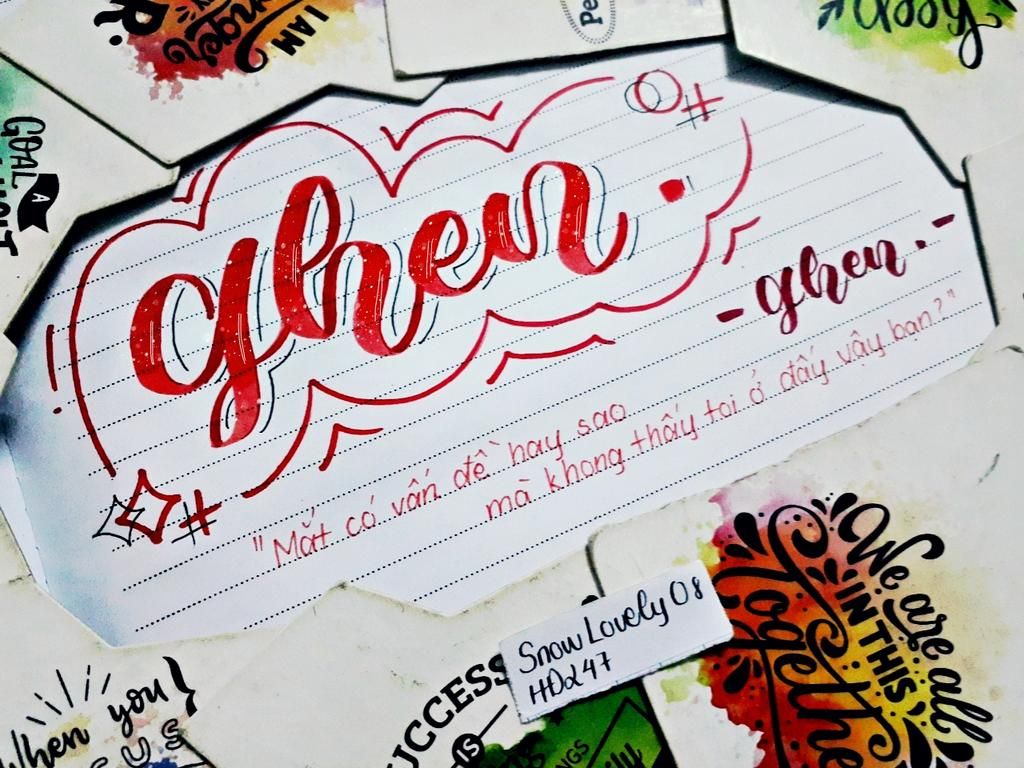 I AM
R.
Pe
GOAL
A
ghen.
- ghen. -
"Mắt có vấn đề hay sao
mà khong thấy toi ở đấy vậy bạn?"
Snow Lovely 08
HD247
We are all
IN THIS
Togethe
When you
UCCESS
IS